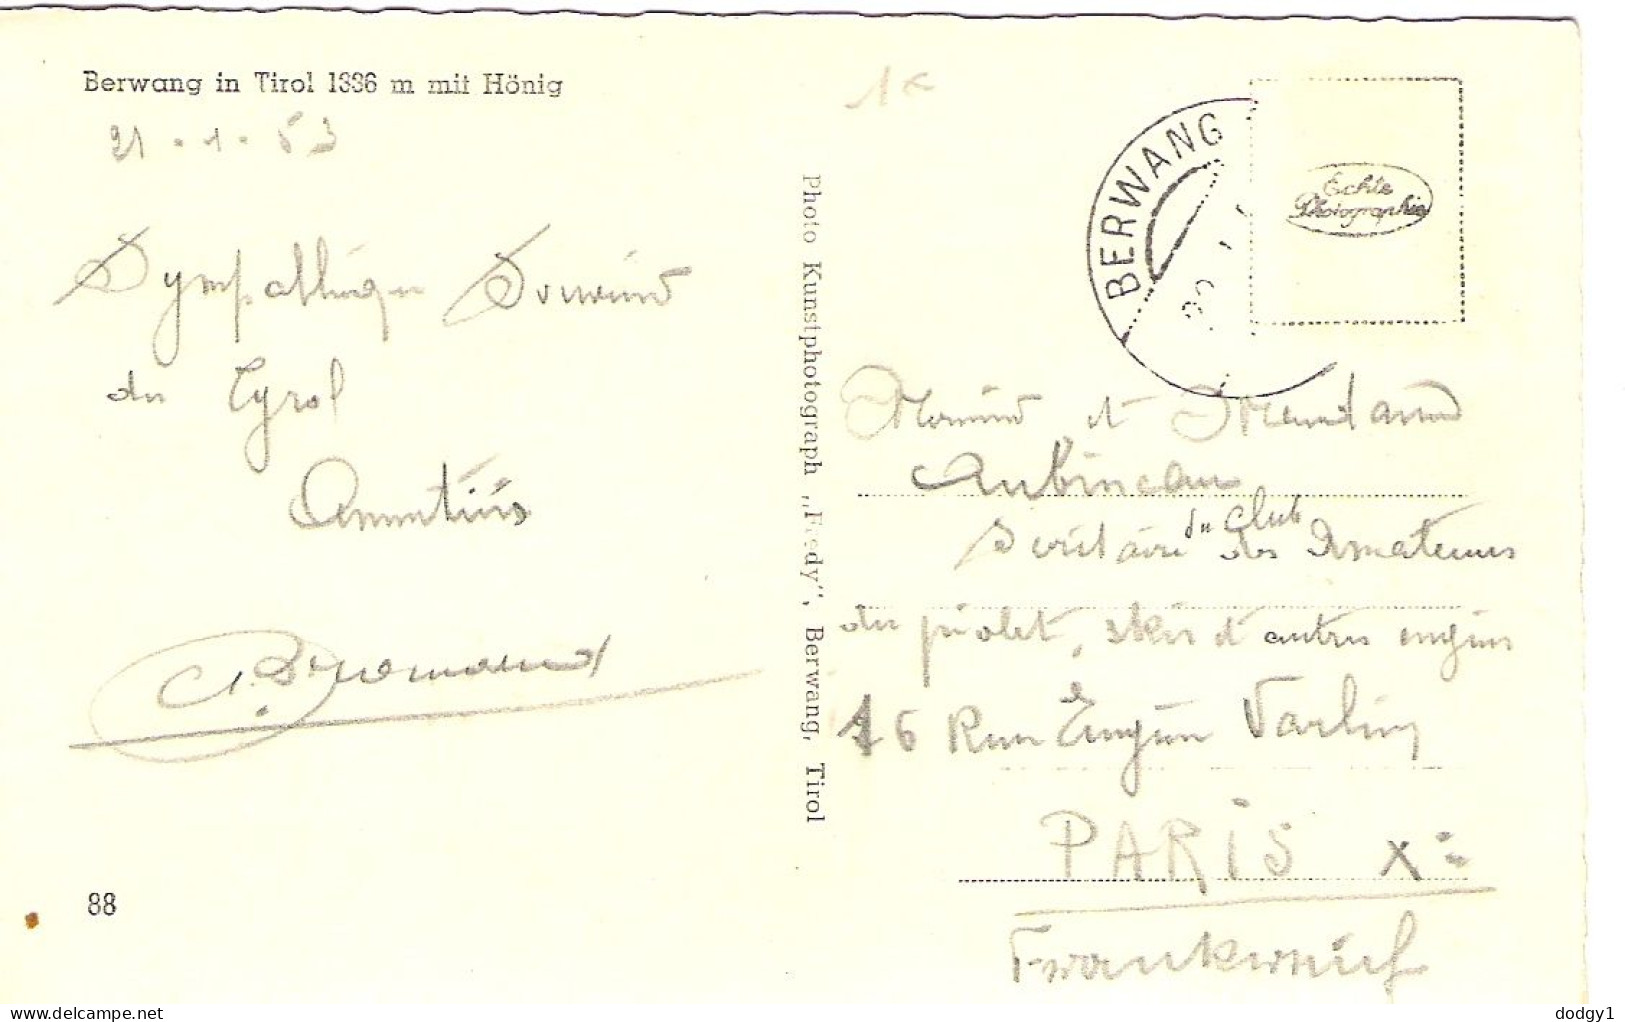 Berwang in Tirol 1336 m mit Hönig
21.1.53
Sympathique Souvenir
du Tyrol
Amitiés
88
Photo Kunstphotograph „Fredy“, Berwang, Tirol
1€
BERWANG
Echte
Photographie
Monsieur et Madame
Aubineau
Secrétaire du Club des Amateurs
du piolet, skis d'autres engins
16 Rue Eugène Varlin
PARIS X
Frankreich
delcampe.net
dodgy1